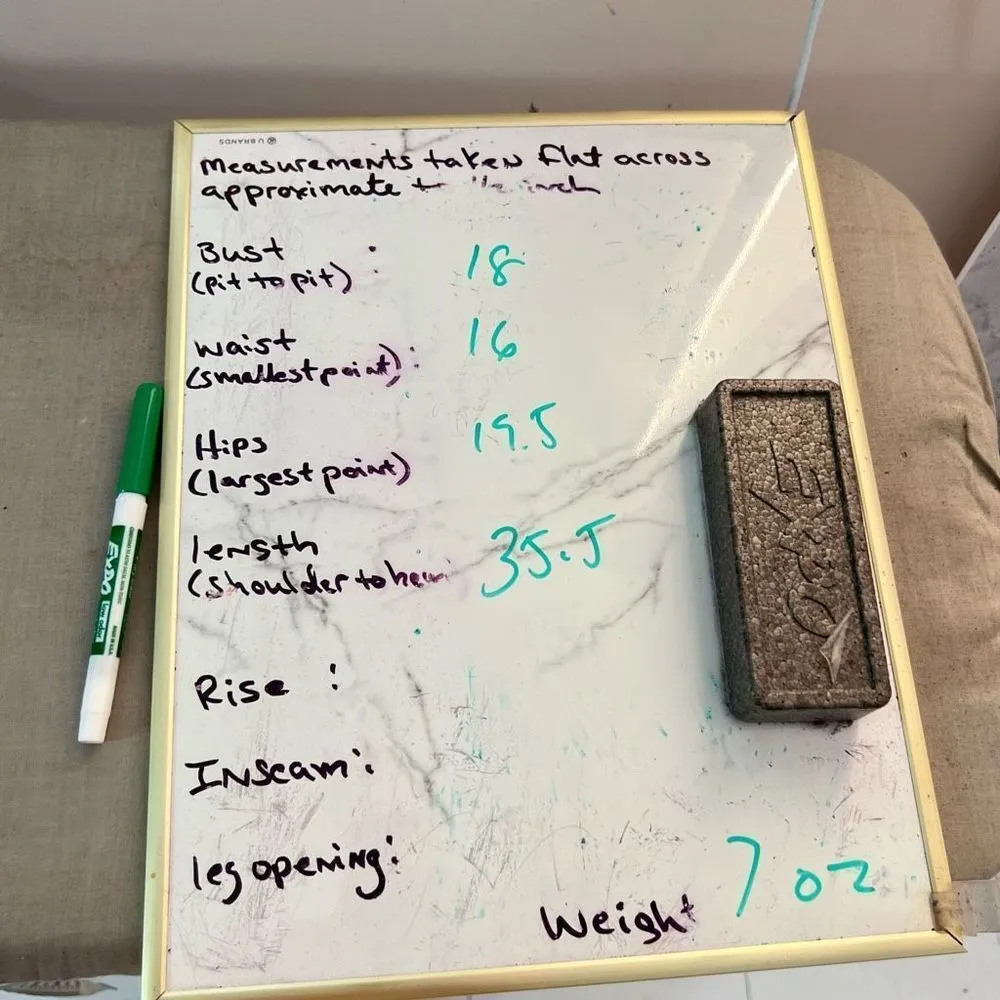 U BRANDS
Measurements taken flat across
approximate + 1/2 inch
Bust : 18
(pit to pit)
Waist : 16
(smallest point)
Hips 19.5
(largest point)
length 35.5
(shoulder to hem)
Rise :
Inseam :
leg opening :
Weight 7 oz
EXPO
Quake